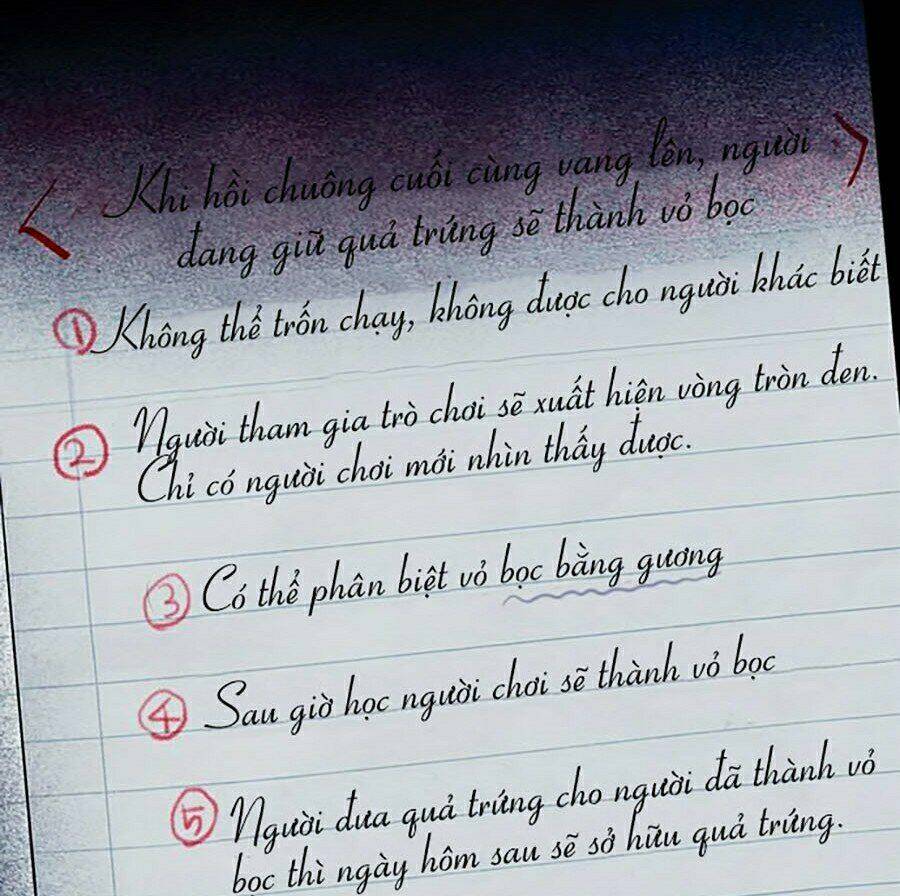 < Khi hồi chuông cuối cùng vang lên, người >
đang giữ quả trứng sẽ thành vỏ bọc
① Không thể trốn chạy, không được cho người khác biết
② Người tham gia trò chơi sẽ xuất hiện vòng tròn đen.
Chỉ có người chơi mới nhìn thấy được.
③ Có thể phân biệt vỏ bọc bằng gương
④ Sau giờ học người chơi sẽ thành vỏ bọc
⑤ Người đưa quả trứng cho người đã thành vỏ
bọc thì ngày hôm sau sẽ sở hữu quả trứng.